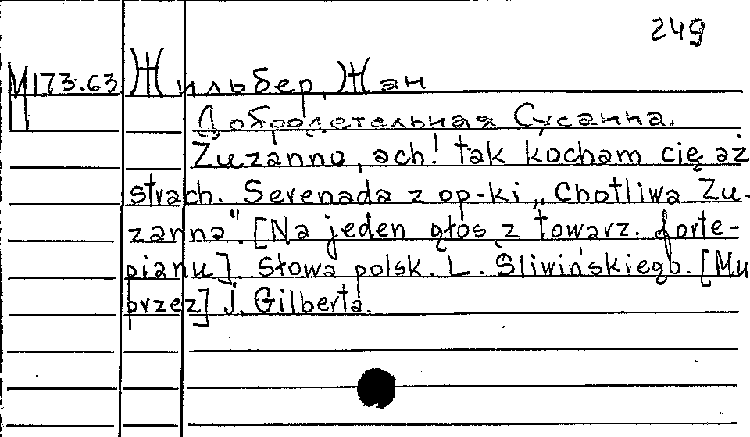 249
М173.63 Жильбер, Жан
Добродетельная Сусанна.
Zuzanno, ach! tak kocham cię aż
strach. Serenada z op-ki „Cnotliwa Zu-
zanna". [Na jeden głos z towarz. forte-
pianu]. Słowa polsk. L. Śliwińskiego. [Mu
przez] J. Gilberta.